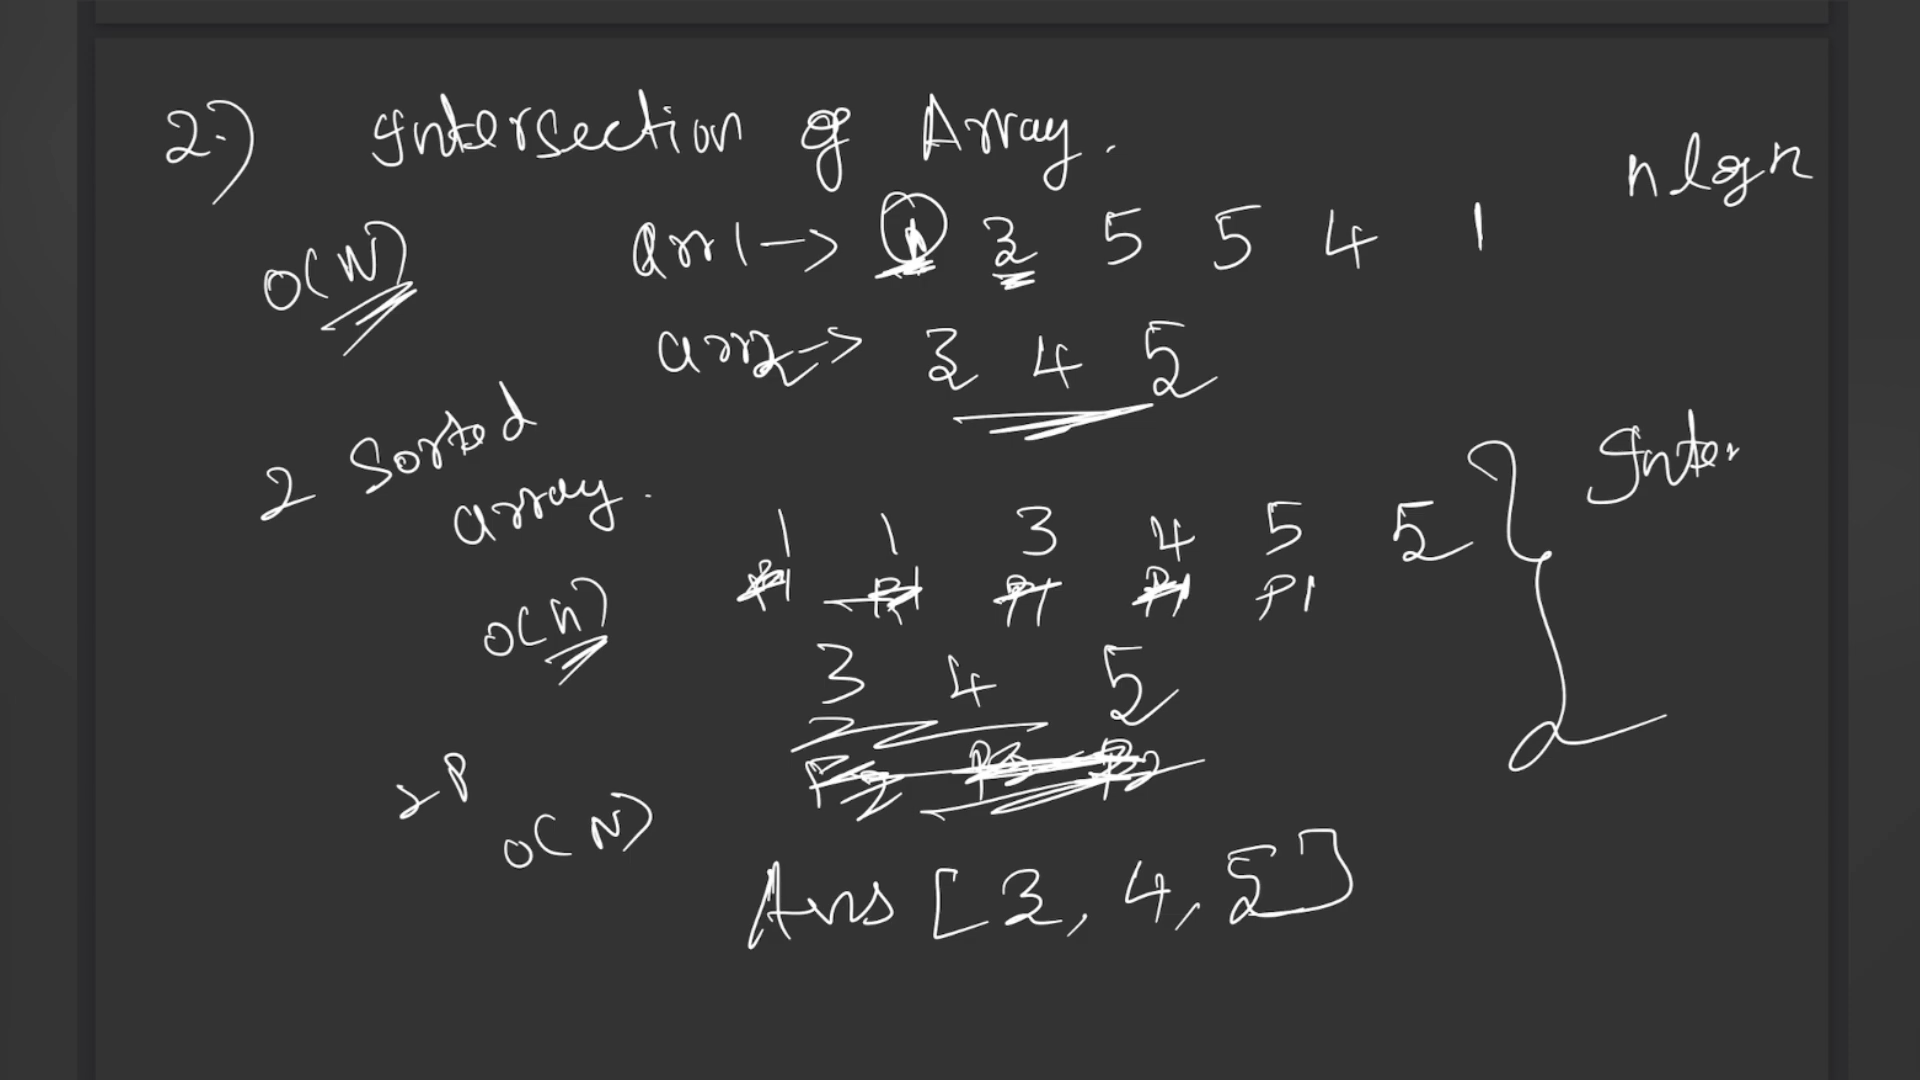 2.) Intersection of Array.
nlogn
O(N)
arr1-> 1 3 5 5 4 1
arr2-> 3 4 5
2 Sorted
array.
Inter
1 1 3 4 5 5
P1 P1 P1 P1 P1
O(n)
3 4 5
P2 P2 P2
2P
O(N)
Ans [3, 4, 5]